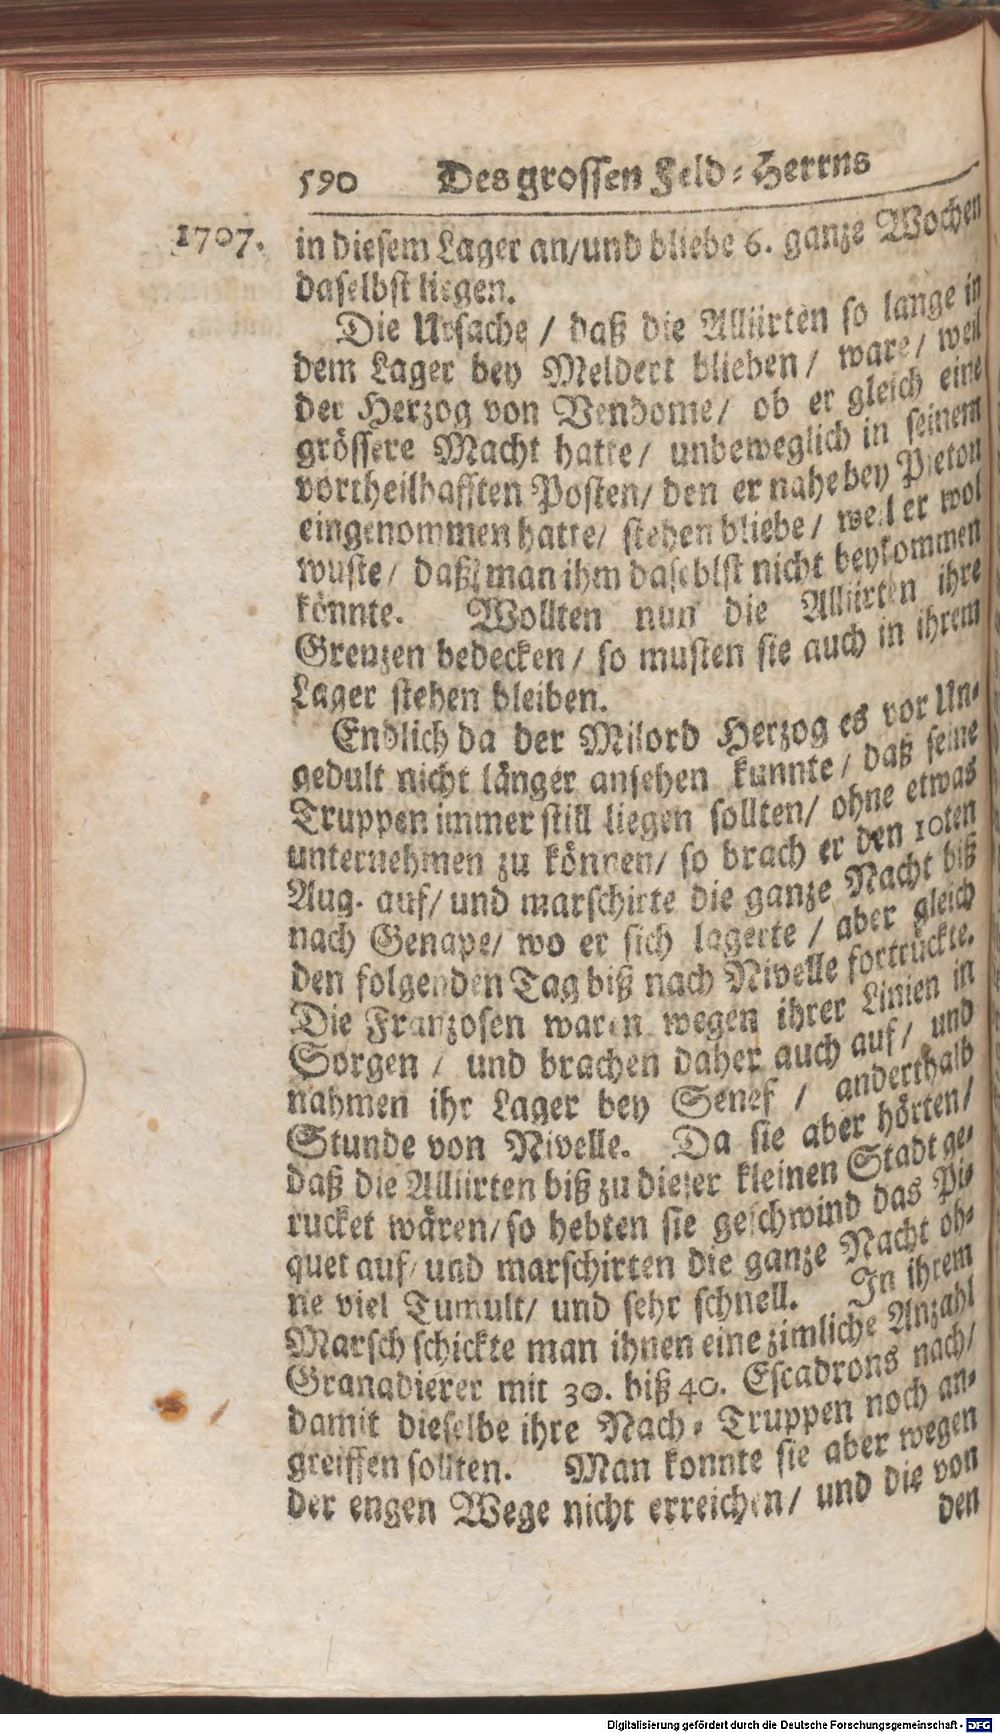 590 Des grossen Feld-Herrns
1707. in diesem Lager an/und bliebe 6. ganze Wochen
daselbst liegen.
Die Ursache / daß die Alliirten so lange in
dem Lager bey Meldert blieben/ ware/ weil
der Herzog von Vendome/ ob er gleich eine
grössere Macht hatte/ unbeweglich in seinem
vortheilhafften Posten/ den er nahe bey Pieton
eingenommen hatte/ stehen bliebe/ weil er wol
wuste/ daß man ihm daseblst nicht beykommen
könnte. Wollten nun die Alliirten ihre
Grenzen bedecken/ so musten sie auch in ihrem
Lager stehen bleiben.
Endlich da der Milord Herzog es vor Un-
gedult nicht länger ansehen kunnte/ daß seine
Truppen immer still liegen sollten/ ohne etwas
unternehmen zu können/ so brach er den 10ten
Aug. auf/ und marschirte die ganze Nacht biß
nach Genape/ wo er sich lagerte / aber gleich
den folgenden Tag biß nach Nivelle fortruckte.
Die Franzosen waren wegen ihrer Linien in
Sorgen / und brachen daher auch auf/ und
nahmen ihr Lager bey Senef / anderthalb
Stunde von Nivelle. Da sie aber hörten/
daß die Alliirten biß zu dieser kleinen Stadt ge-
rucket wären/ so hebten sie geschwind das Pi-
quet auf/ und marschirten die ganze Nacht oh-
ne viel Tumult/ und sehr schnell. In ihrem
Marsch schickte man ihnen eine zimliche Anzahl
Granadierer mit 30. biß 40. Escadrons nach/
damit dieselbe ihre Nach-Truppen noch an-
greiffen sollten. Man konnte sie aber wegen
der engen Wege nicht erreichen/ und die von
den
Digitalisierung gefördert durch die Deutsche Forschungsgemeinschaft - DFG